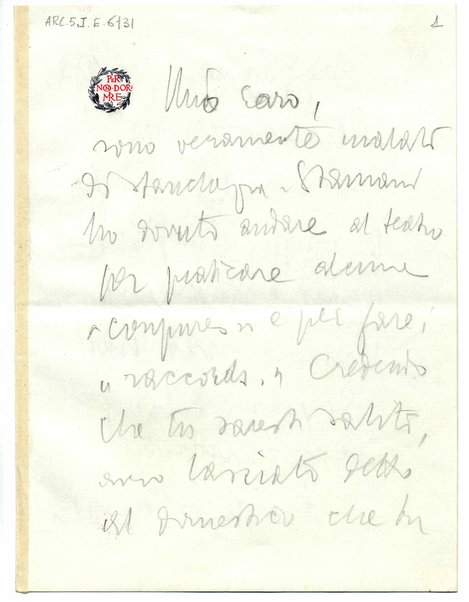 ARC.5.I.E.6/31
1
PER
NON DOR
MIRE
Mio caro,
sono veramente malato
di stanchezza. Stamani
ho dovuto andare al teatro
per praticare alcune
"coupures" e per fare i
"raccords." Credendo
che tu saresti salito,
avevo lasciato detto
al domestico che tu